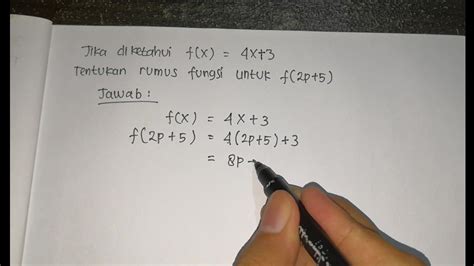 Jika diketahui f(x) = 4x+3
Tentukan rumus fungsi untuk f(2p+5)
Jawab:
f(x) = 4x+3
f(2p+5) = 4(2p+5)+3
= 8p+